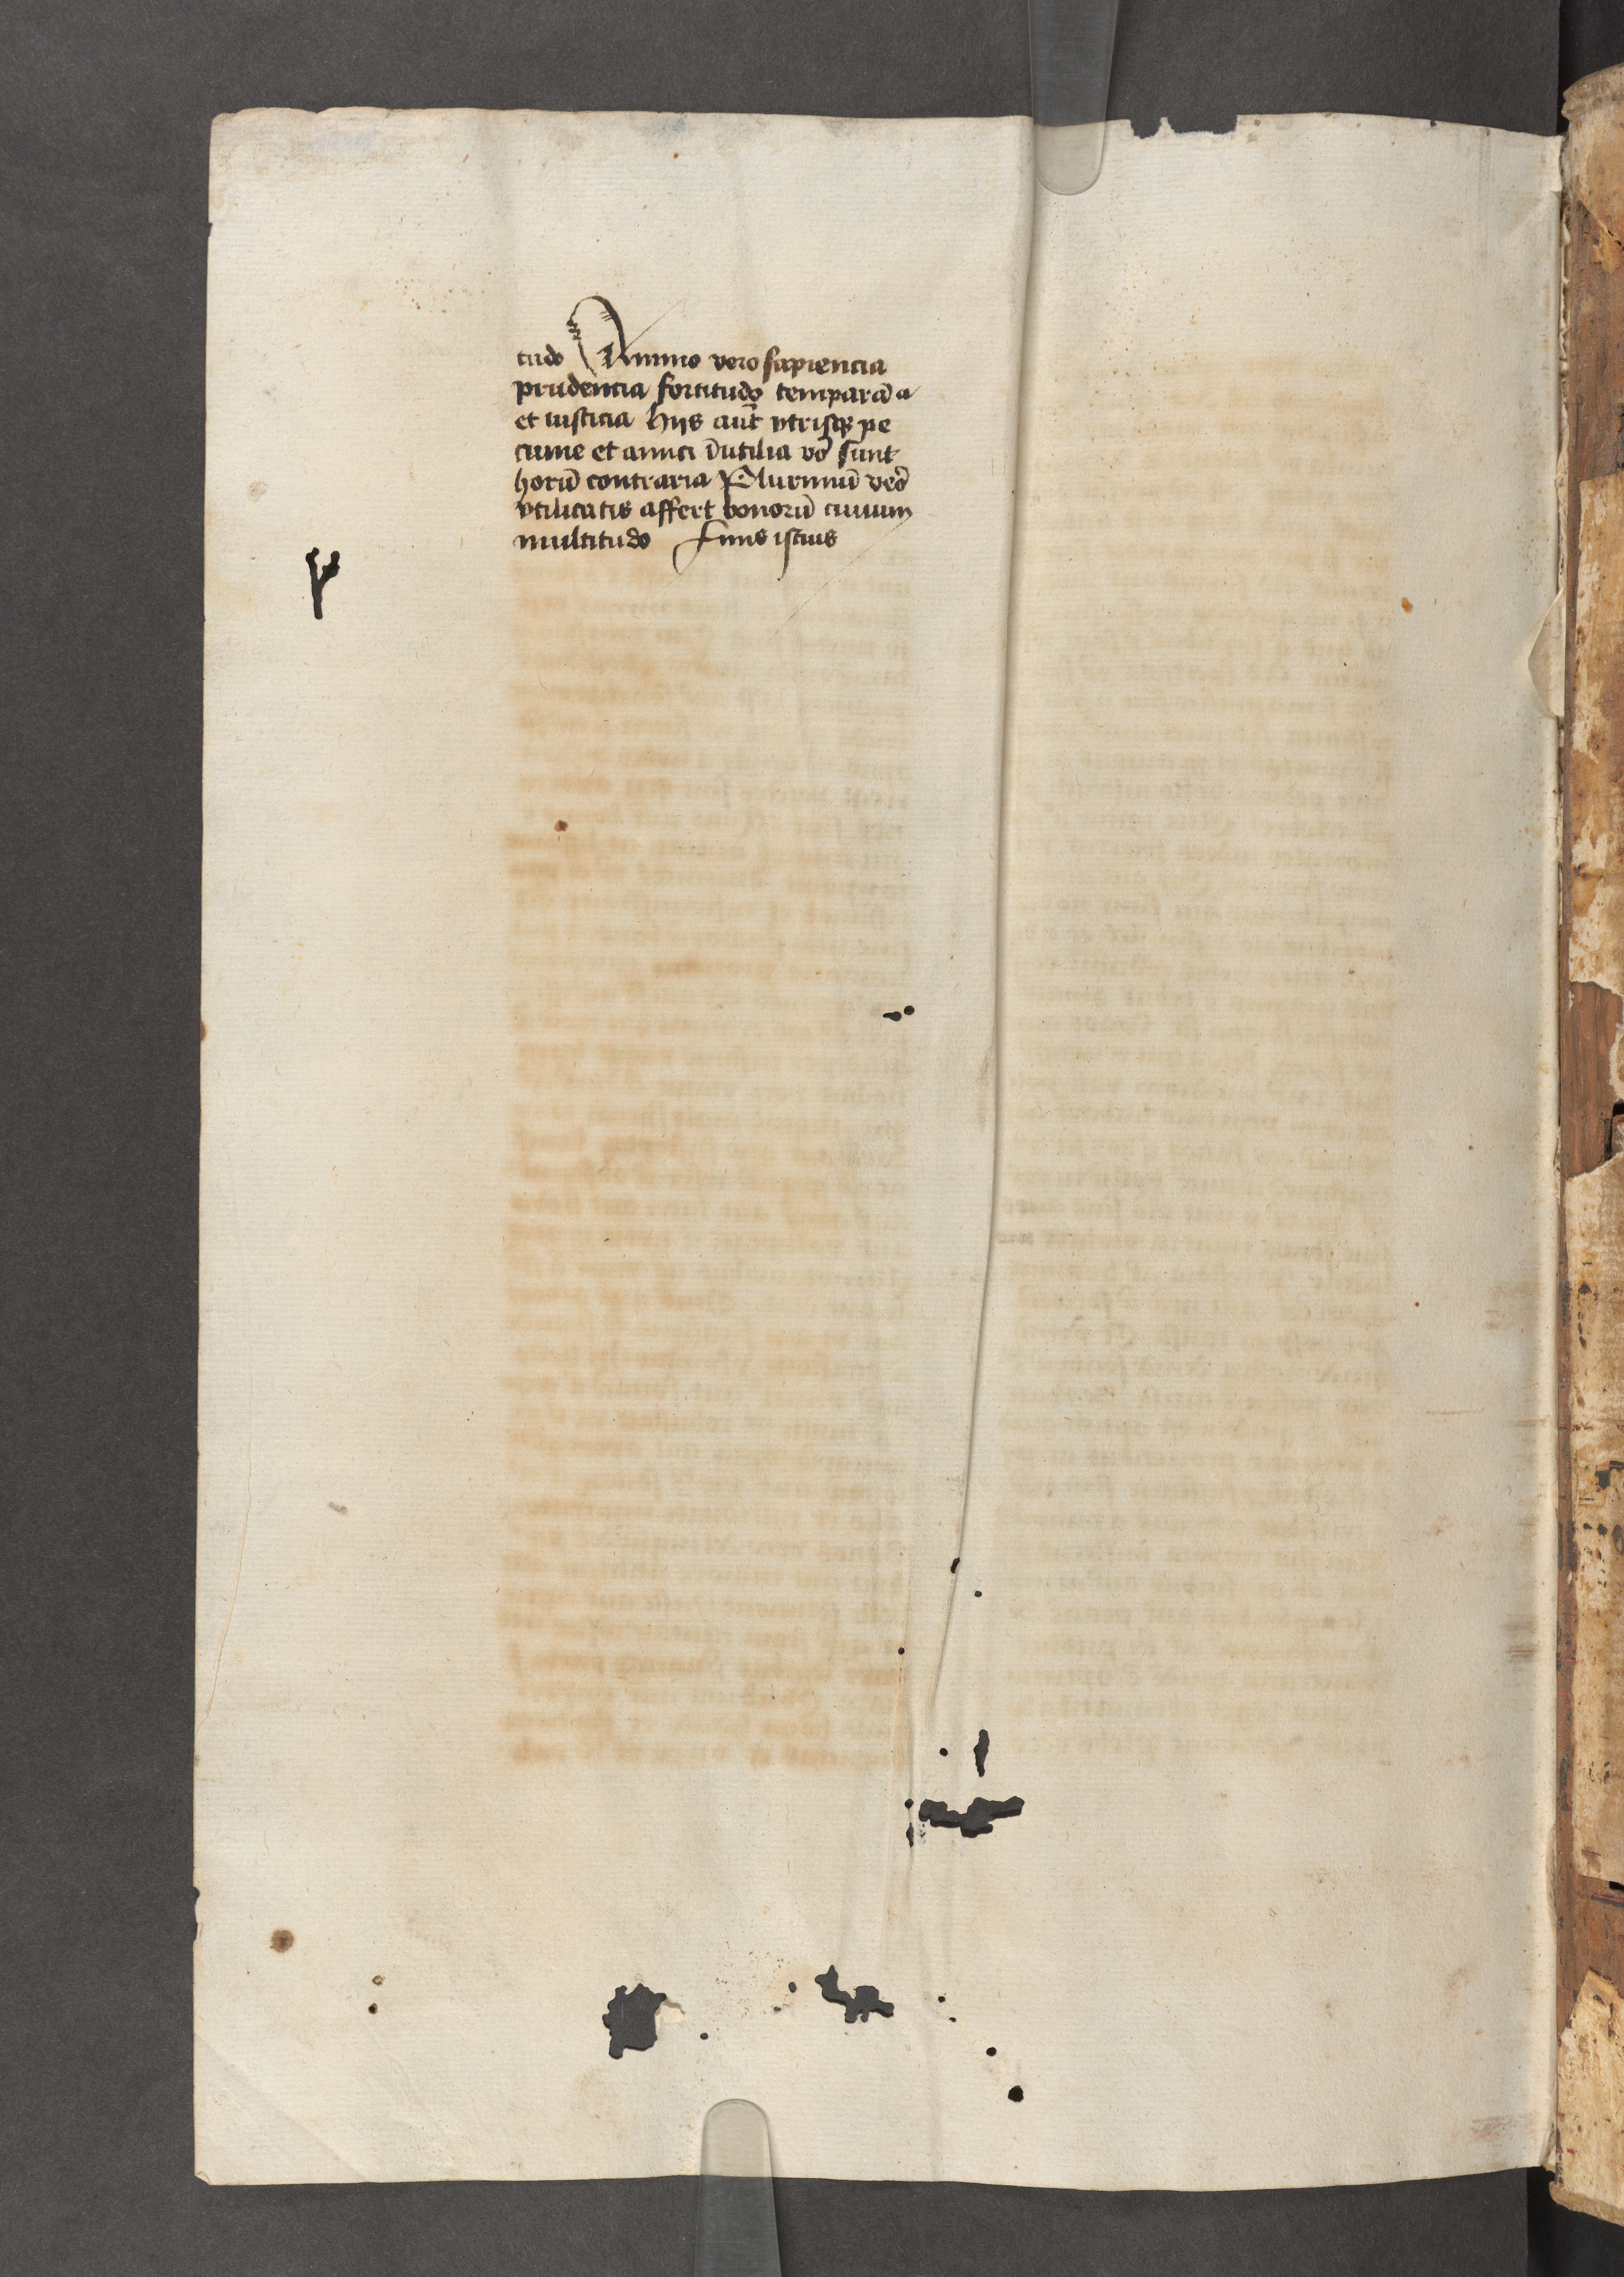 tudo Animo vero sapiencia
prudencia fortitudo temparācia
et iusticia hijs aūt vtrisqꝫ pe
cunie et amici Jnutilia vo̅ sunt
horū contraria Plurimū vero̅
vtilitatis affert bonorū ciuium
multitudo Finis istius